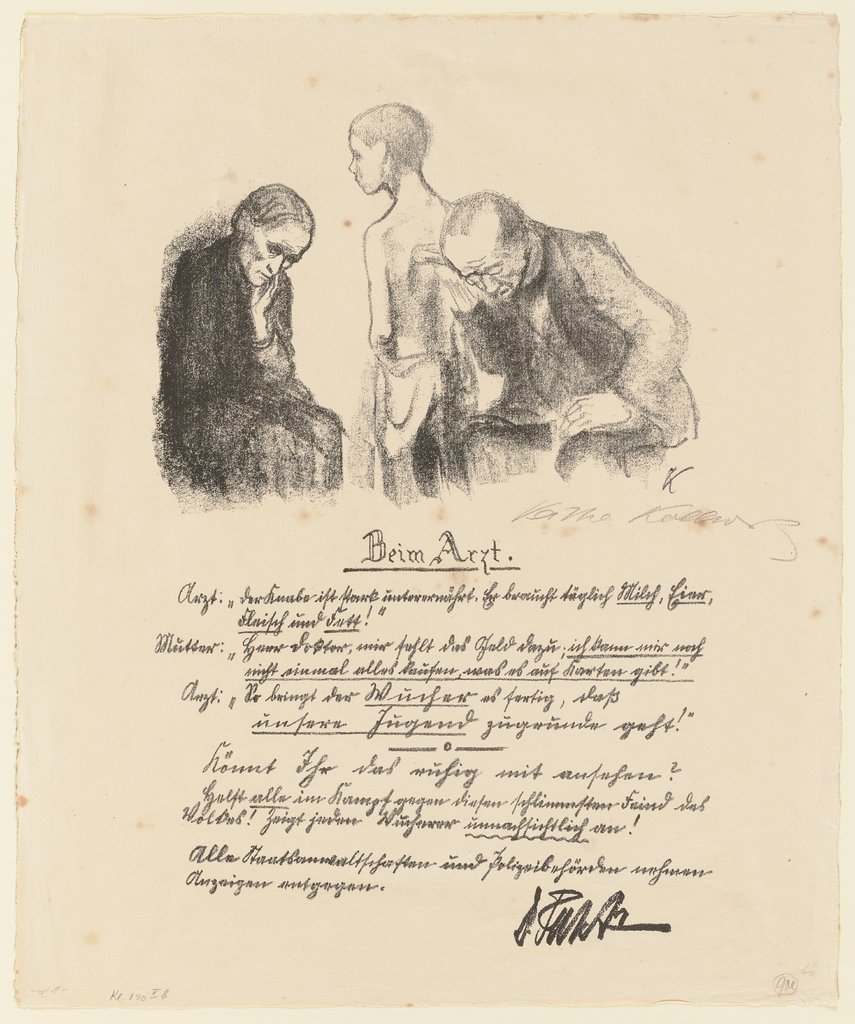 K
Käthe Kollwitz
Beim Arzt.
Arzt: „Der Knabe ist stark unterernährt. Er braucht täglich Milch, Eier,
Fleisch und Fett!“
Mutter: „Herr Doktor, mir fehlt das Geld dazu, ich kann mir noch
nicht einmal alles kaufen, was es auf Karten gibt!“
Arzt: „So bringt der Wucher es fertig, daß
unsere Jugend zugrunde geht!“
Könnt Ihr das ruhig mit ansehen?
Helft alle im Kampf gegen diesen schlimmsten Feind des
Volkes! Zeigt jeden Wucherer unnachsichtlich an!
Alle Staatsanwaltschaften und Polizeibehörden nehmen
Anzeigen entgegen.
Kl. 150 II b